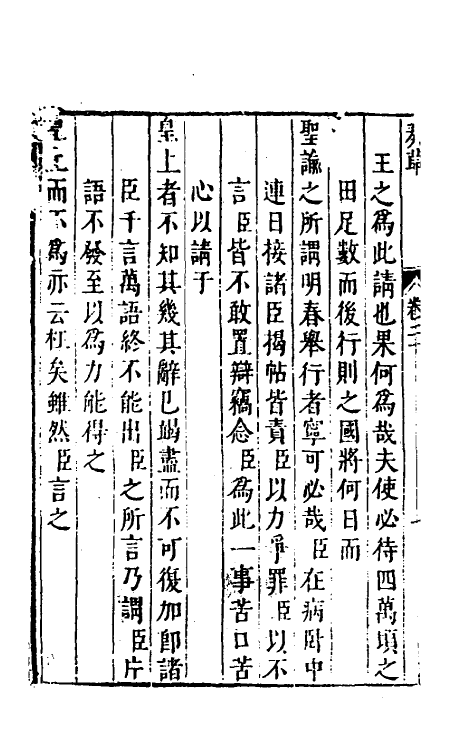 奏草 卷二十
王之爲此請也果何爲哉夫使必待四萬頃之
田足數而後行則之國將何日而
聖諭之所謂明春舉行者寧可必哉臣在病卧中
連日接諸臣揭帖皆責臣以力爭罪臣以不
言臣皆不敢置辯竊念臣爲此一事苦口苦
心以請于
皇上者不知其幾其辭已竭盡而不可復加卽諸
臣千言萬語終不能出臣之所言乃謂臣片
語不發至以爲力能得之
而不爲亦云枉矣雖然臣言之